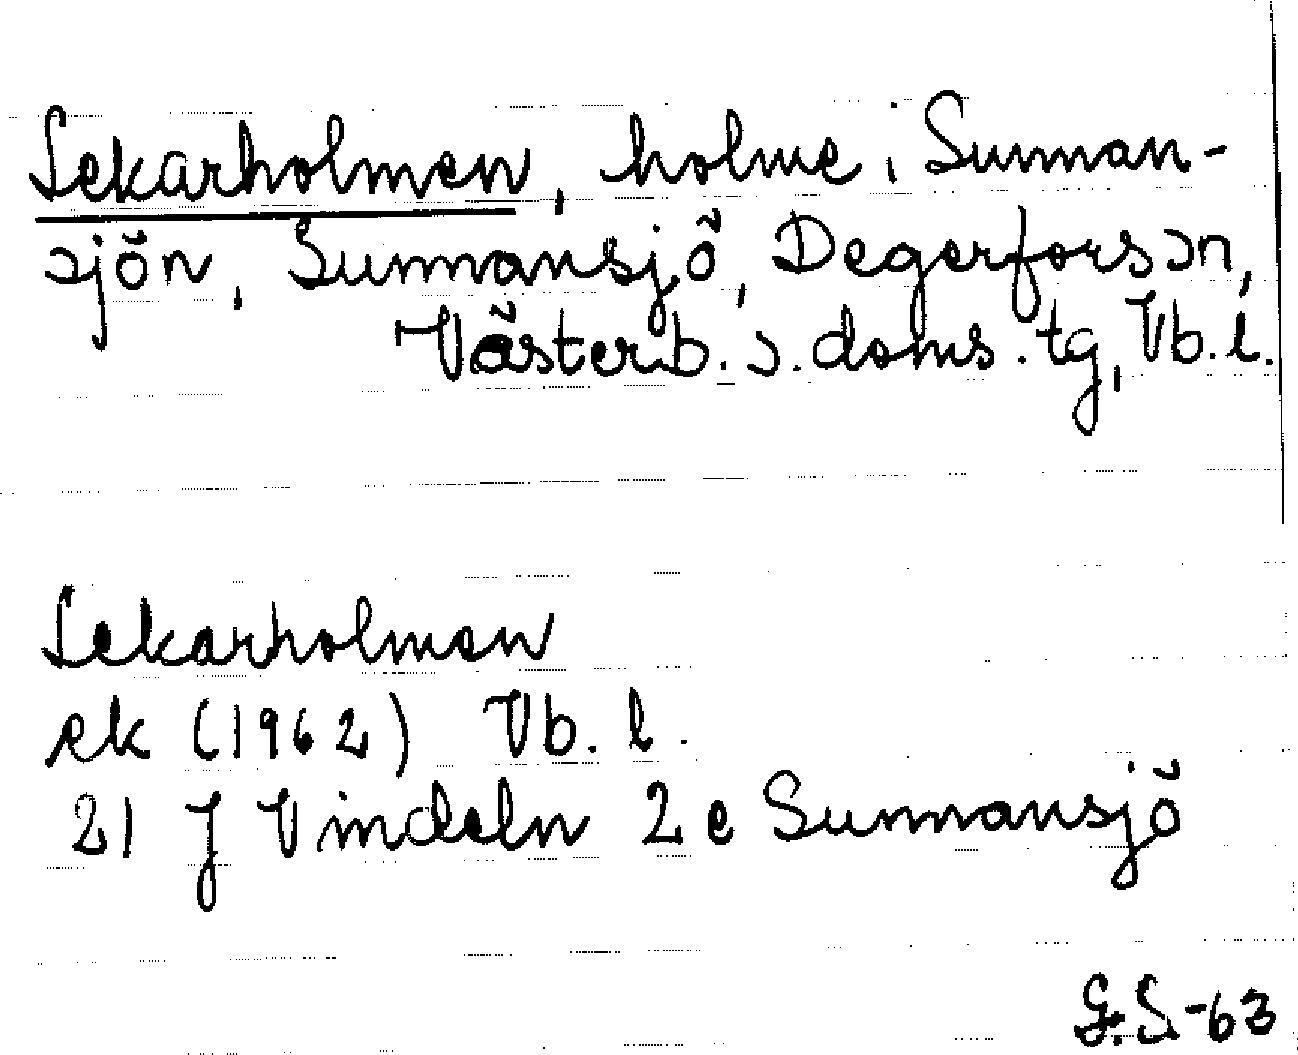 Lekarholmen, holme i Sunnan-
sjön, Sunnansjö, Degerfors sn,
Västerb. s. doms. tg, Vb. l.
Lekarholmen
ek (1962) Vb. l.
21 J Vindeln 2 e Sunnansjö
G.S-63